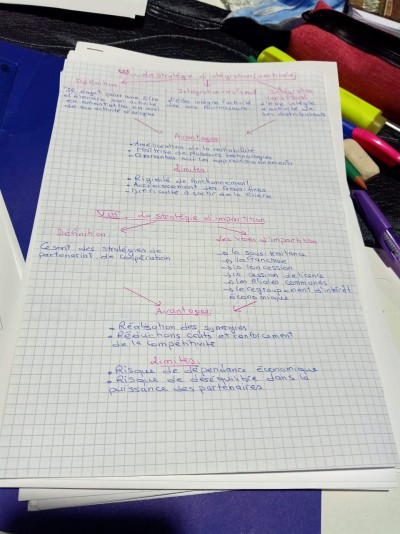 La stratégie d'intégration (verticale)
Définition
Intégration en amont
Intégration
Il s'agit pour une
d'étendre son activité
en amont
de son activité d'origine
intègre l'activité
de ses fournisseurs
intègre
l'activité de
ses distributeurs
Avantages
• Amélioration de la rentabilité
• Maîtrise de plusieurs technologies
sur les approvisionnements
Limites
• Rigidité de fonctionnement
• Accroissement des frais fixes
• Difficulté à sortir de la filière
VIII. La stratégie d'impartition
Définition
Les types d'impartition
Ce sont des stratégies de
partenariat de coopération
→ la sous-traitance
→ la franchise
→ la concession
→ la cession de licence
→ les filiales communes
→ le regroupement d'intérêt
économique
Avantages
• Réalisation des synergies
• Réductions coûts et renforcement
de la compétitivité
Limites
• Risque de dépendance économique
• Risque de déséquilibre dans la
puissance des partenaires